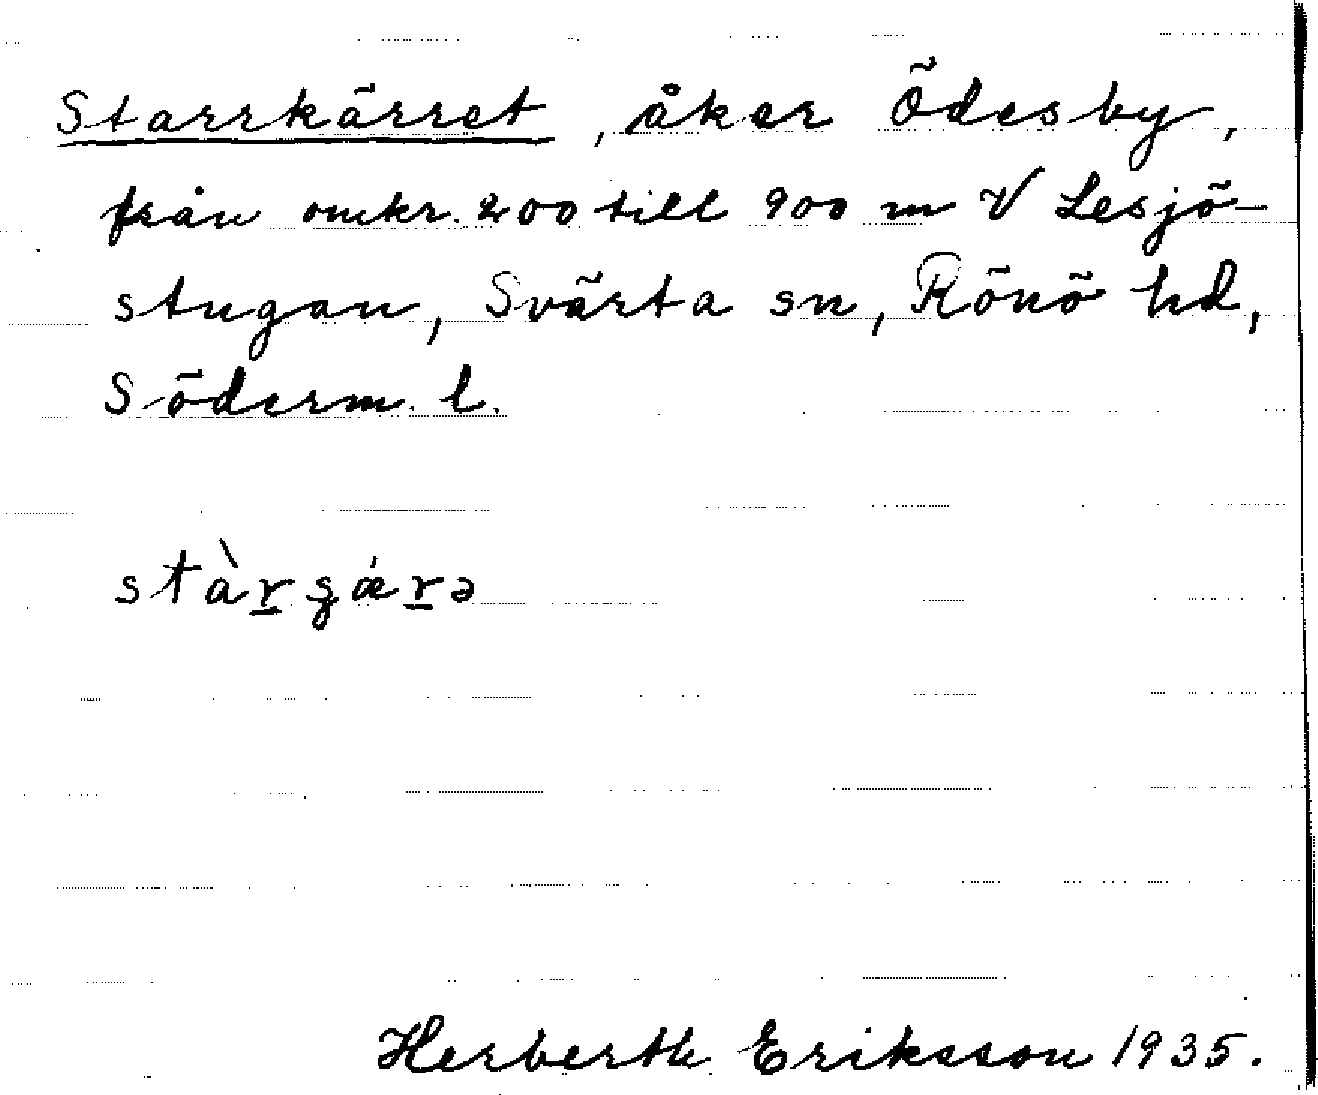 Starrkärret, åker Ödesby,
från omkr. 200 till 900 m V Lesjö-
stugan, Svärta sn, Rönö hd,
Söderm. l.
stàr̲gǽr̲ə
Herberth Eriksson 1935.